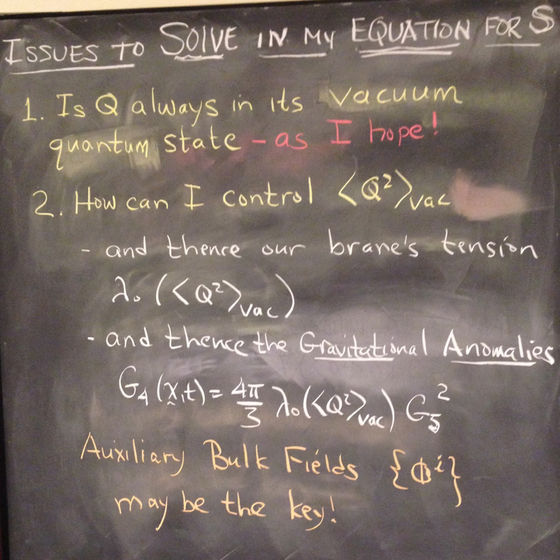 ISSUES TO SOLVE IN MY EQUATION FOR S
1. Is Q always in its vacuum
quantum state - as I hope!
2. How can I control ⟨Q²⟩vac
- and thence our brane's tension
λ₀ (⟨Q²⟩vac)
- and thence the Gravitational Anomalies
G₄(x,t) = 4π/3 λ₀(⟨Q²⟩vac) G₅²
Auxiliary Bulk Fields {Φⁱ}
may be the key!